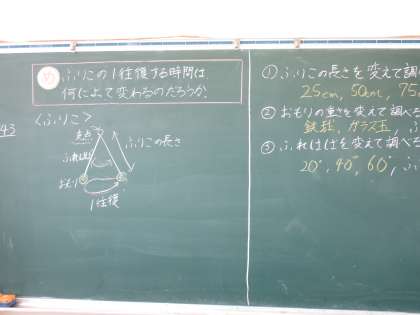 め ふりこの1往復する時間は
何によって変わるのだろうか。
43
<ふりこ>
支点
ふりこの長さ
ふれはば
おもり
1往復
① ふりこの長さを変えて調
25cm, 50cm, 75
② おもりの重さを変えて調べる
鉄球, ガラス玉, ふ
③ ふれはばを変えて調べる
20°, 40°, 60°, ふ